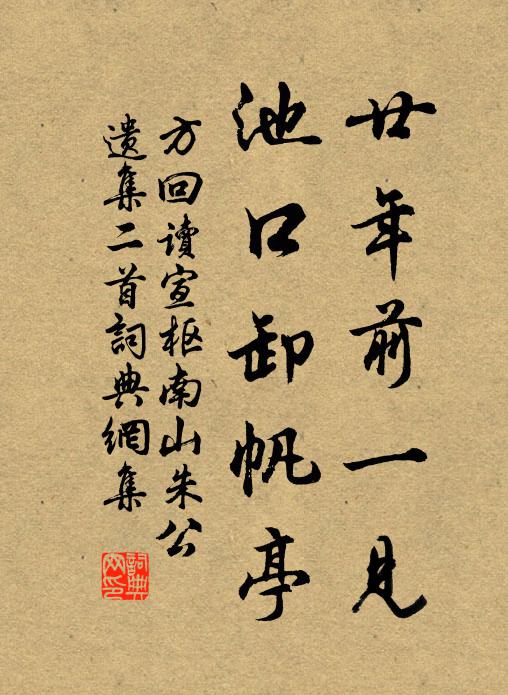 廿年前一見
池口卸帆亭
方回读宣枢南山朱公
遗集二首詞典網集
詞典網印